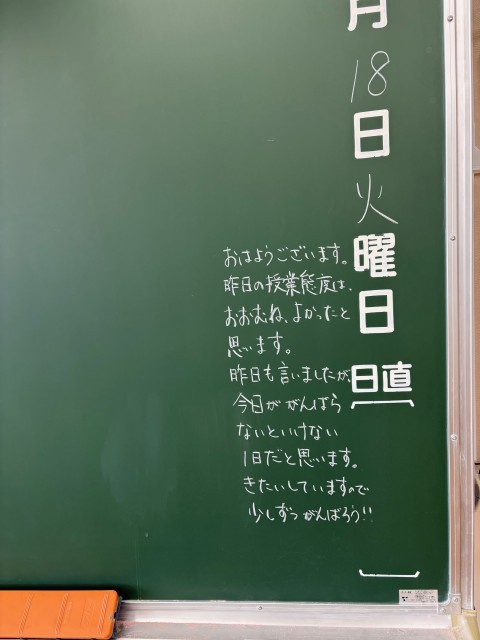 月
18
日
火
曜
日
日直
おはようございます。
昨日の授業態度は、
おおむね、よかったと
思います。
昨日も言いましたが、
今日ががんばら
ないといけない
1日だと思います。
きたいしていますので
少しずつがんばろう!!